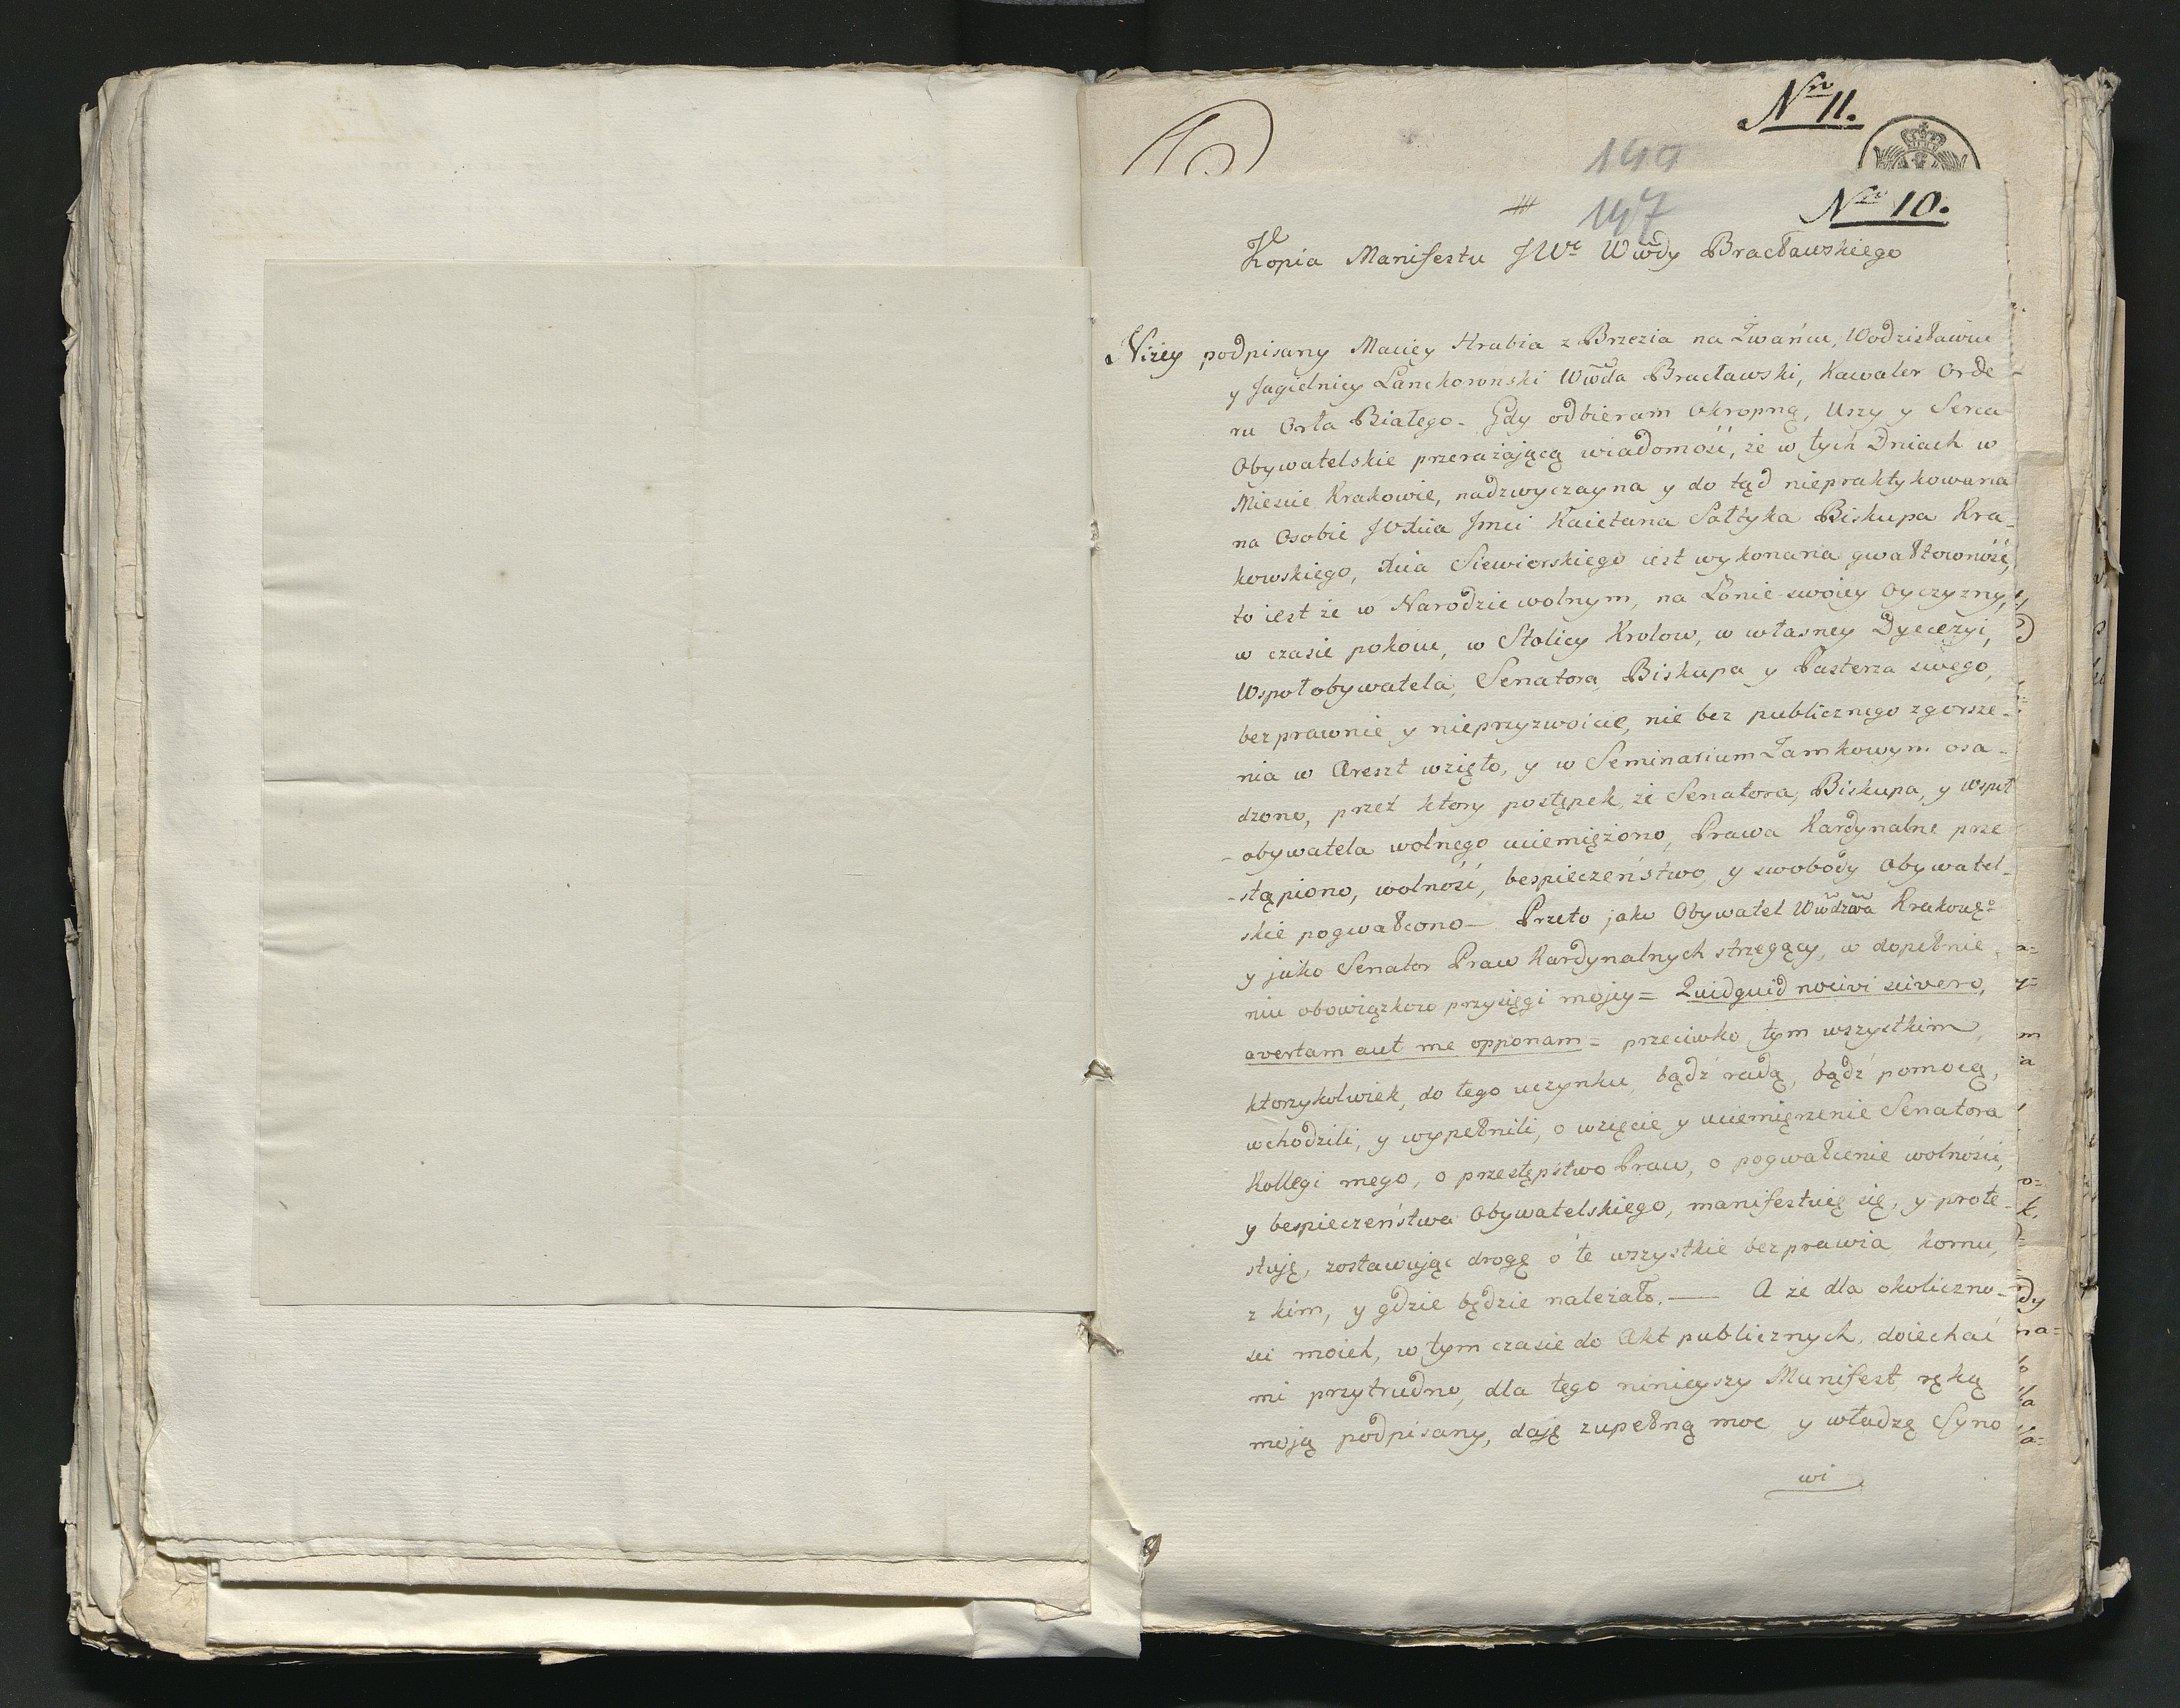 Nro 11.
147
Nro 10.
Kopia Manifestu JWo Wwdy Bracławskiego
Niżey podpisany Maciey Hrabia z Brzezia na Żwańcu, Wodzisławiu
y Jagielnicy Lanckoronski Wwda Bracławski, Kawaler Orde
ru Orła Białego. Gdy odbieram okropną, Uszy y Serca
Obywatelskie przerażającą wiadomość, że w tych Dniach w
Miescie Krakowie, nadzwyczayna y do tąd niepraktykowana
na Osobie JWXcia Jmci Kaietana Sołtyka Biskupa Kra-
kowskiego, Xcia Siewierskiego iest wykonana gwałtowność,
to iest że w Narodzie wolnym, na Łonie swoiey Oyczyzny,
w czasie pokoiu, w Stolicy Krolow, w własney Dyecezyi,
Wspołobywatela, Senatora, Biskupa y Pasterza swego,
bezprawnie y nieprzyzwoicie, nie bez publicznego zgorsze-
nia w Areszt wzięto, y w Seminarium Zamkowym osa-
dzono, przez ktory postępek, że Senatora, Biskupa, y wspoł
-obywatela wolnego uciemiężono, Prawa Kardynalne prze
-stąpiono, wolność, bespieczeństwo, y swobody Obywatel-
skie pogwałcono — Przeto jako Obywatel Wwdzwa Krakowgo
y jako Senator Praw Kardynalnych strzegący, w dopełnie
niu obowiązkow przysięgi mojey = Quidquid nocivi scivero,
avertam aut me opponam = przeciwko tym wszystkim
ktorzykolwiek, do tego uczynku, bądź radą, bądź pomocą,
wchodzili, y wypełnili, o wzięcie y uciemięzenie Senatora
Kollegi mego, o przestępstwo Praw, o pogwałcenie wolności,
y bespieczeństwa Obywatelskiego, manifestuię się, y prote-
stuję, zostawując drogę o te wszystkie bezprawia, komu,
z kim, y gdzie będzie należało. — A że dla okoliczno-
sci moich, w tym czasie do Akt publicznych, doiechać
mi przytrudno, dla tego ninieyszy Manifest ręką
moją podpisany, daję zupełną moc y władzę Syno
wi